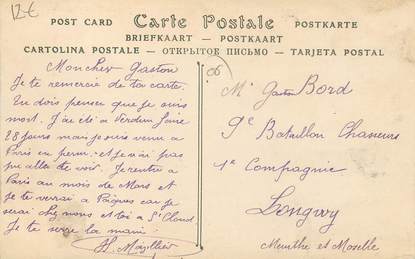 12€
POST CARD Carte Postale POSTKARTE
BRIEFKAART - POSTKAART
CARTOLINA POSTALE - ОТКРЫТОЕ ПИСЬМО - TARJETA POSTAL
06
Mon cher Gaston
Je te remercie de ta carte.
Tu dois penser que je suis
mort. J'ai été à Verdun faire
28 jours mais je suis venu à
Paris en perm. et je n'ai pas
pu aller te voir. Je rentre à
Paris au mois de Mars et
je te verrai à Pâques car je
serai chez nous et toi à St Cloud
Je te serre la main.
Mr Gaston Bord
9e Bataillon Chasseurs
1e Compagnie
Longwy
Meurthe et Moselle